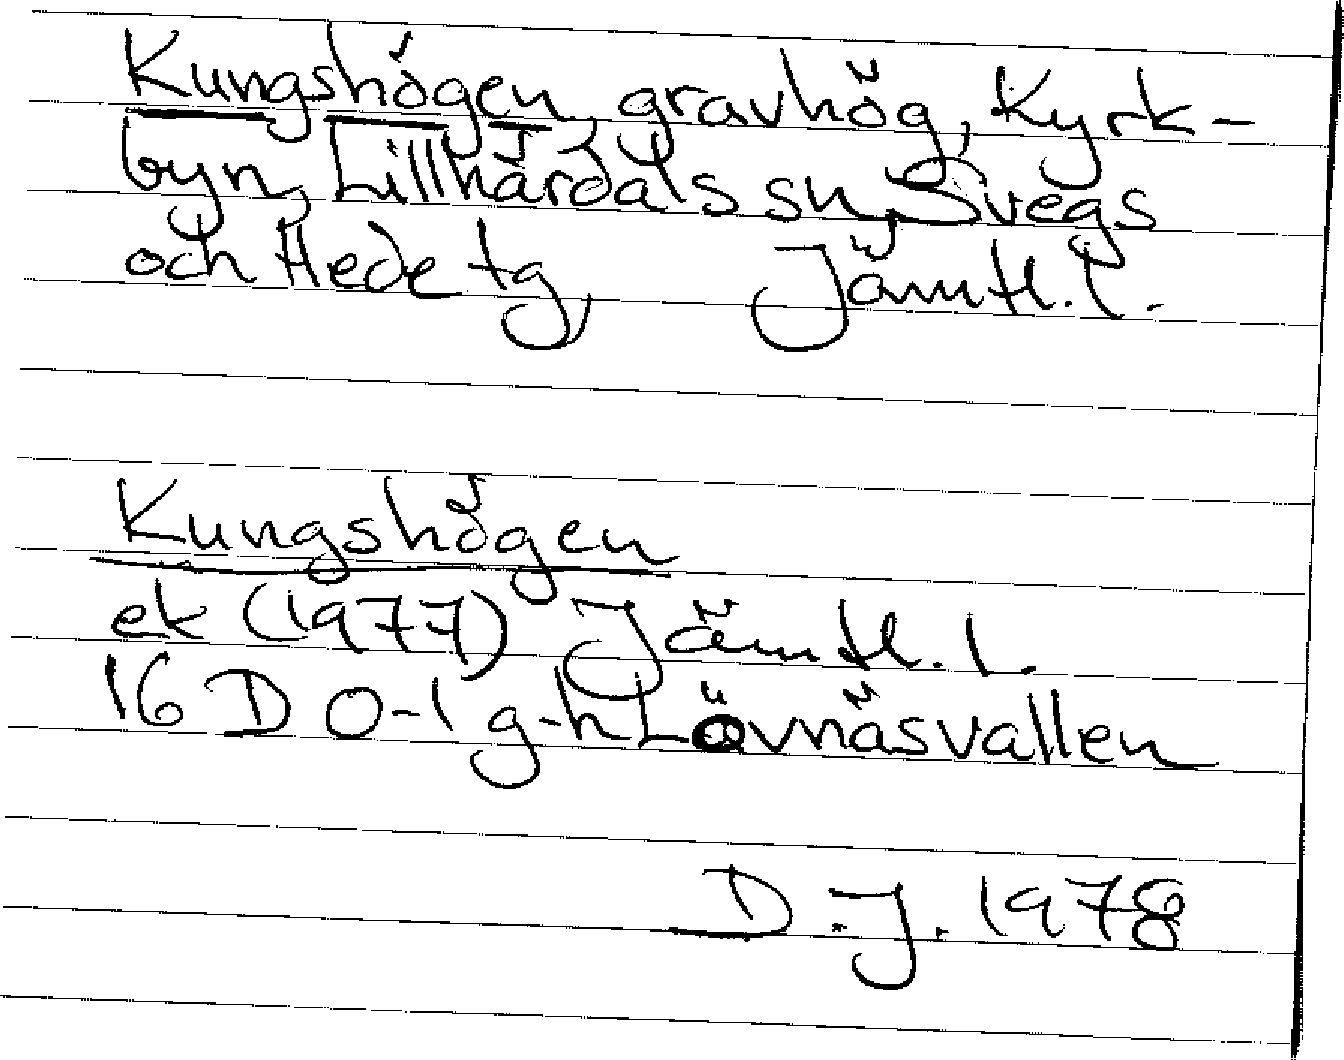 Kungshögen, gravhög, Kyrk-
byn, Lillhärdals sn, Svegs
och Hede tg, Jämtl. l.
Kungshögen
ek (1977) Jämtl. l.
16 D 0-1 g-h Lövnäsvallen
D.J. 1978